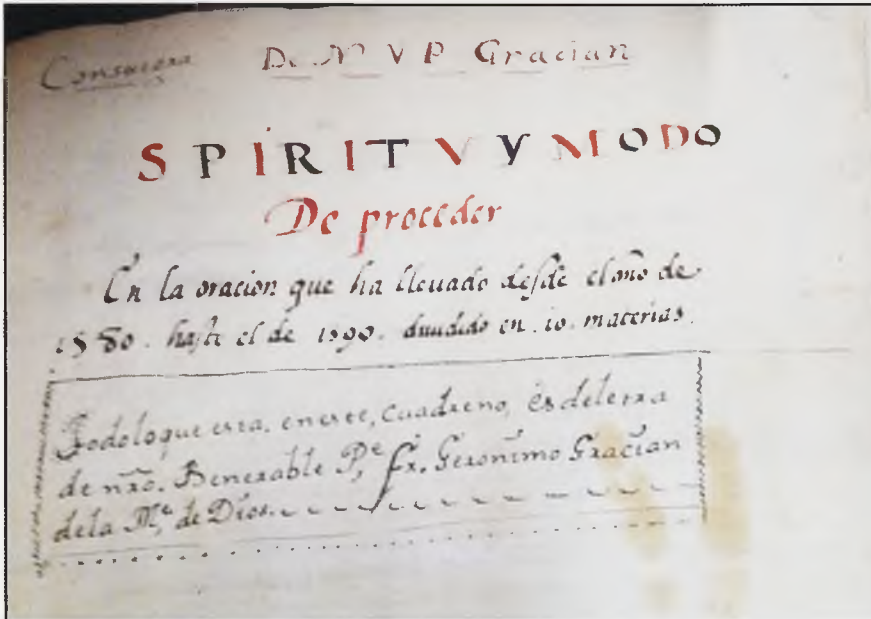 Consuegra
De Nº V P Gracian
SPIRITV Y MODO
De proceder
En la oracion que ha lleuado desde el año de
1580. haste el de 1590. diuidido en .10. materias.
Todo lo que esta, en este, Cuadreno, es de letra
de nr̃o. Benerable P,e fr. Geronimo Gracian
de la M,e de Dios.